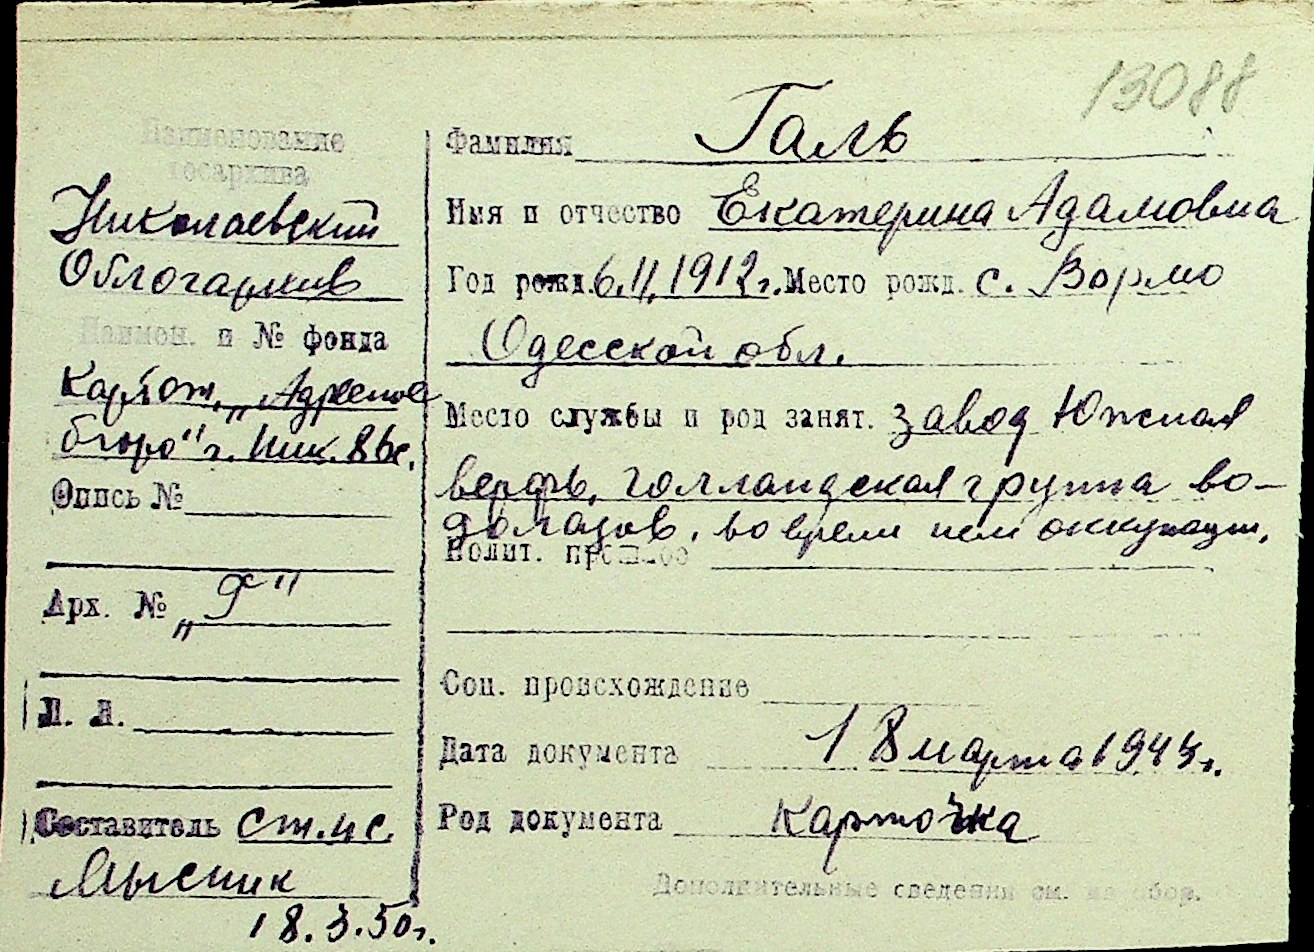 13088
Наименование
госархива
Николаевский
Облогархив
Наимен. и № фонда
Картот. „Адресное
бюро" г. Ник.
Опись №
Арх. № „Г"
Л. Л.
Составитель ст. н с.
Мысник
18.3.50г.
Фамилия Галь
Имя и отчество Екатерина Адамовна
Год рожд. 6.II.1912г. Место рожд. с. Вормс
Одесской обл.
Место службы и род занят. завод Южная
верфь, голландская группа во-
долазов, во время нем оккупации.
Полит. прошлое
Соц. происхождение
Дата документа 18 марта 1943г.
Род документа Карточка
Дополнительные сведения см. на обор.